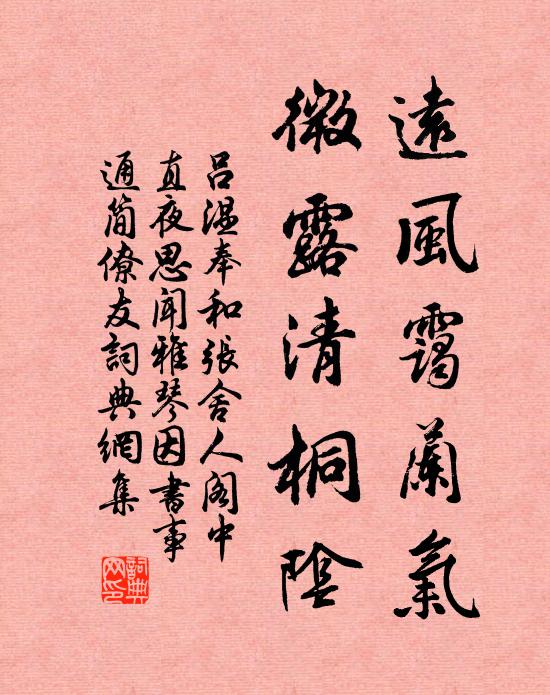 遠風靄蘭氣
微露清桐陰
呂溫奉和張舍人閣中
直夜思聞雅琴因書事
通簡僚友詞典網集
詞典网印